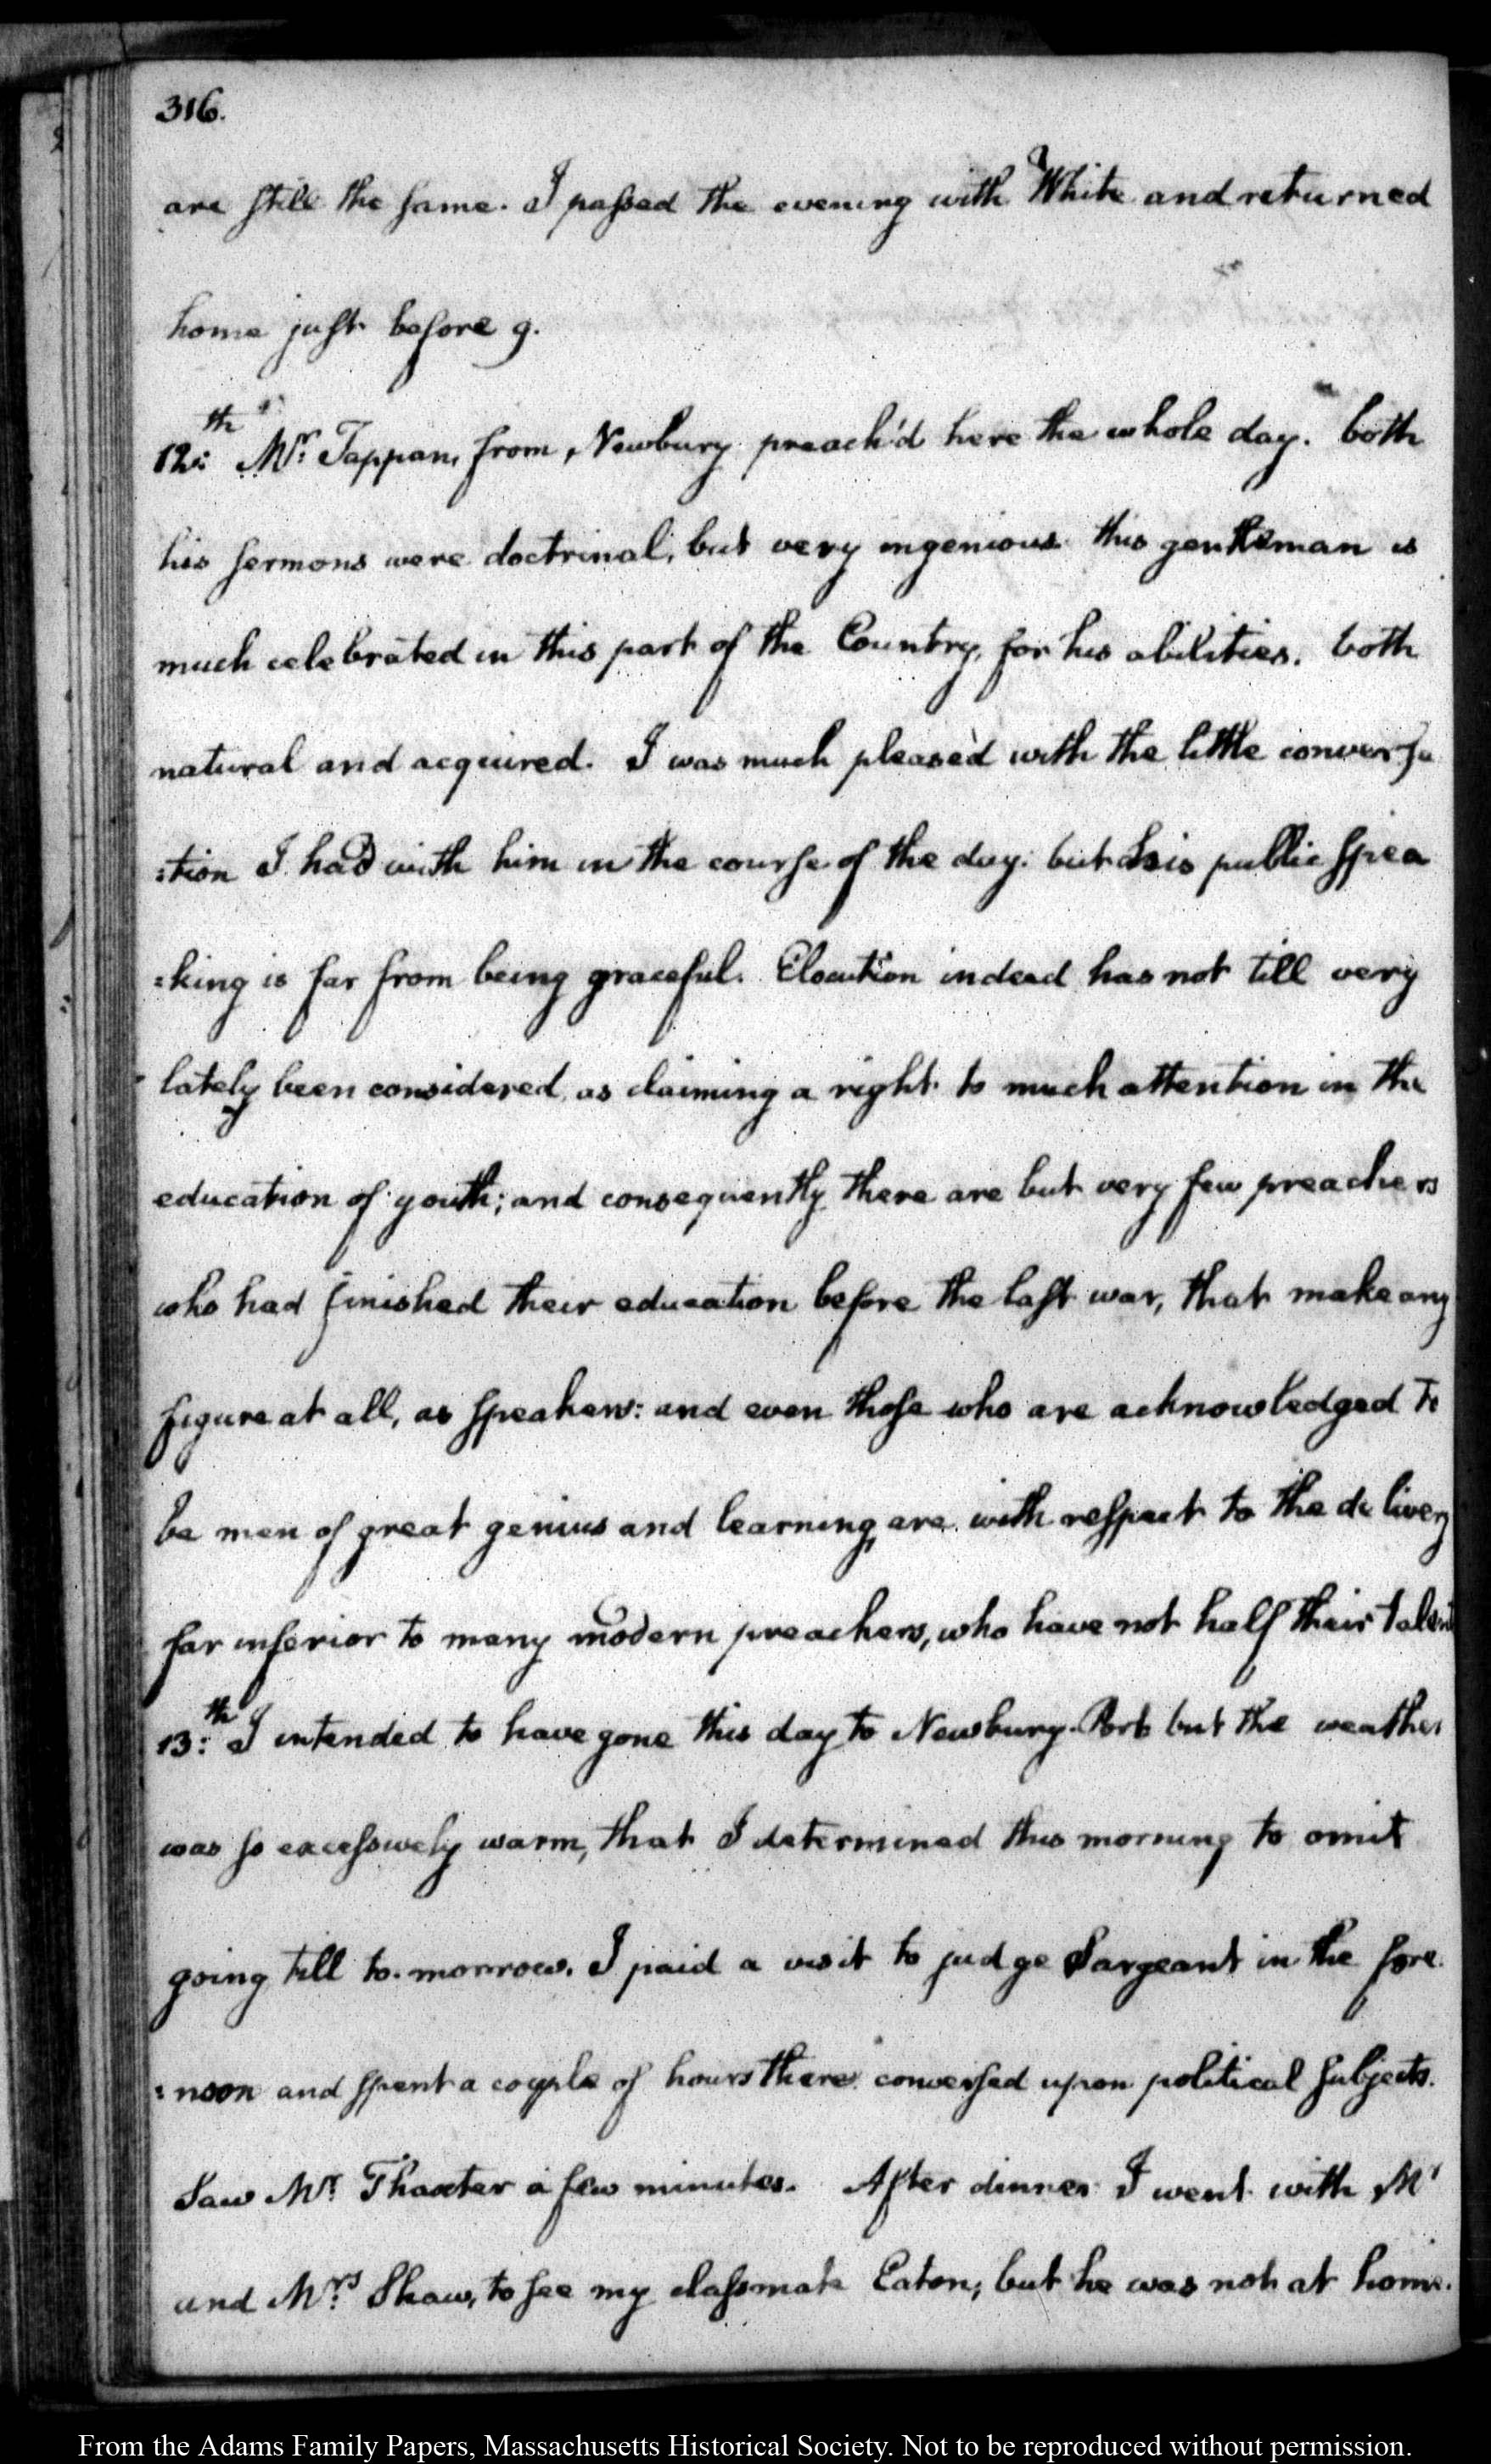 316.
are still the same. I passed the evening with White and returned
home just before 9.
12:th Mr: Tappan, from, Newbury preach'd here the whole day. both
his sermons were doctrinal, but very ingenious. this gentleman is
much celebrated in this part of the Country, for his abilities, both
natural and acquired. I was much pleased with the little conversa
:tion I had with him in the course of the day. but his public spea
:king is far from being graceful. Elocution indeed has not till very
lately been considered, as claiming a right to much attention in the
education of youth; and consequently there are but very few preachers
who had finished their education before the last war, that make any
figure at all, as speakers: and even those who are acknowledged to
be men of great genius and learning, are with respect to the delivery
far inferior to many modern preachers, who have not half their
13:th I intended to have gone this day to Newbury-Port but the weather
was so excessively warm, that I determined this morning to omit
going till to-morrow. I paid a visit to judge Sargeant in the fore
:noon and spent a couple of hours there. conversed upon political subjects.
Saw Mr: Thaxter a few minutes. After dinner I went with Mr
and Mrs: Shaw, to see my classmate Eaton; but he was not at home.
From the Adams Family Papers, Massachusetts Historical Society. Not to be reproduced without permission.